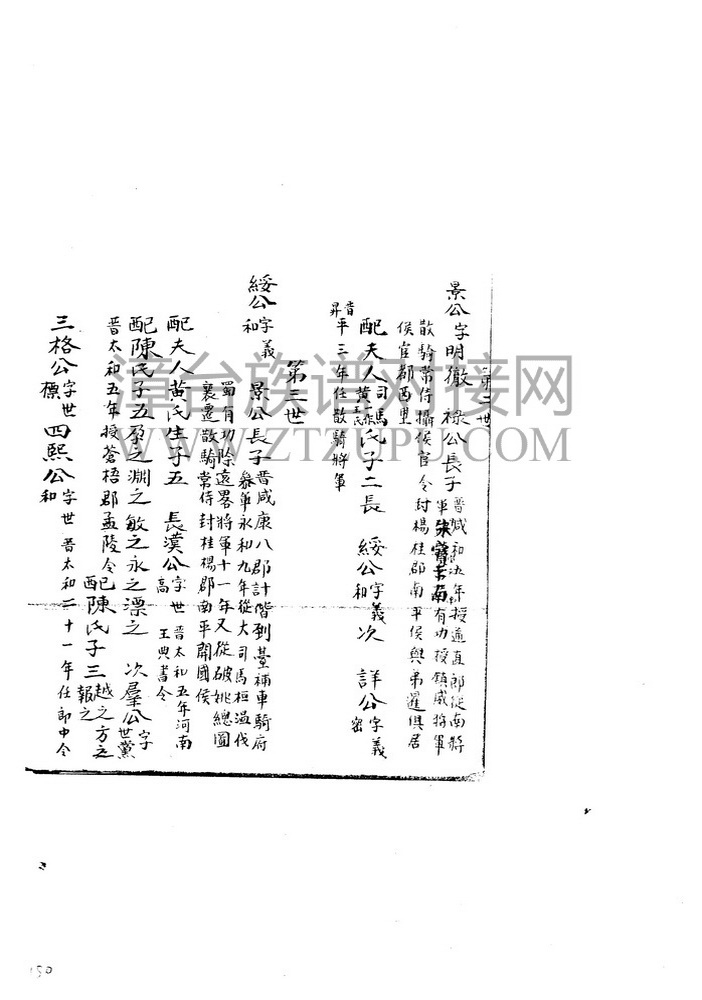 第二世
景公字明徹 祿公長子 晉咸和五年授通直郎從南將
軍 有功授領威將軍
散騎常侍攝侯官令封楊桂郡南平侯與弟暹俱居
侯官郡西里
配夫人司馬氏 黄氏 子二長 綏公字義和 次 詳公字義密
晉昇平三年任散騎將軍
第三世
綏公字義和 景公長子 晉咸康八郡計階到臺補車騎府
參軍永和九年從大司馬桓温伐
蜀有功除遠畧將軍十一年又從破姚總圖
襄遷散騎常侍封桂楊郡南平開國侯
配夫人黄氏生子五 長漢公字世高 晉太和五年河南
王典書令
配陳氏子五孕之淵之敏之永之漂之 次羣公字世黨
晉太和五年授蒼梧郡孟陵令配陳氏子三越之方之報之
三格公字世標 四熙公字世和 晉太和二十一年任郎中令
漳台族谱对接网
WWW.ZTZUPU.COM
150